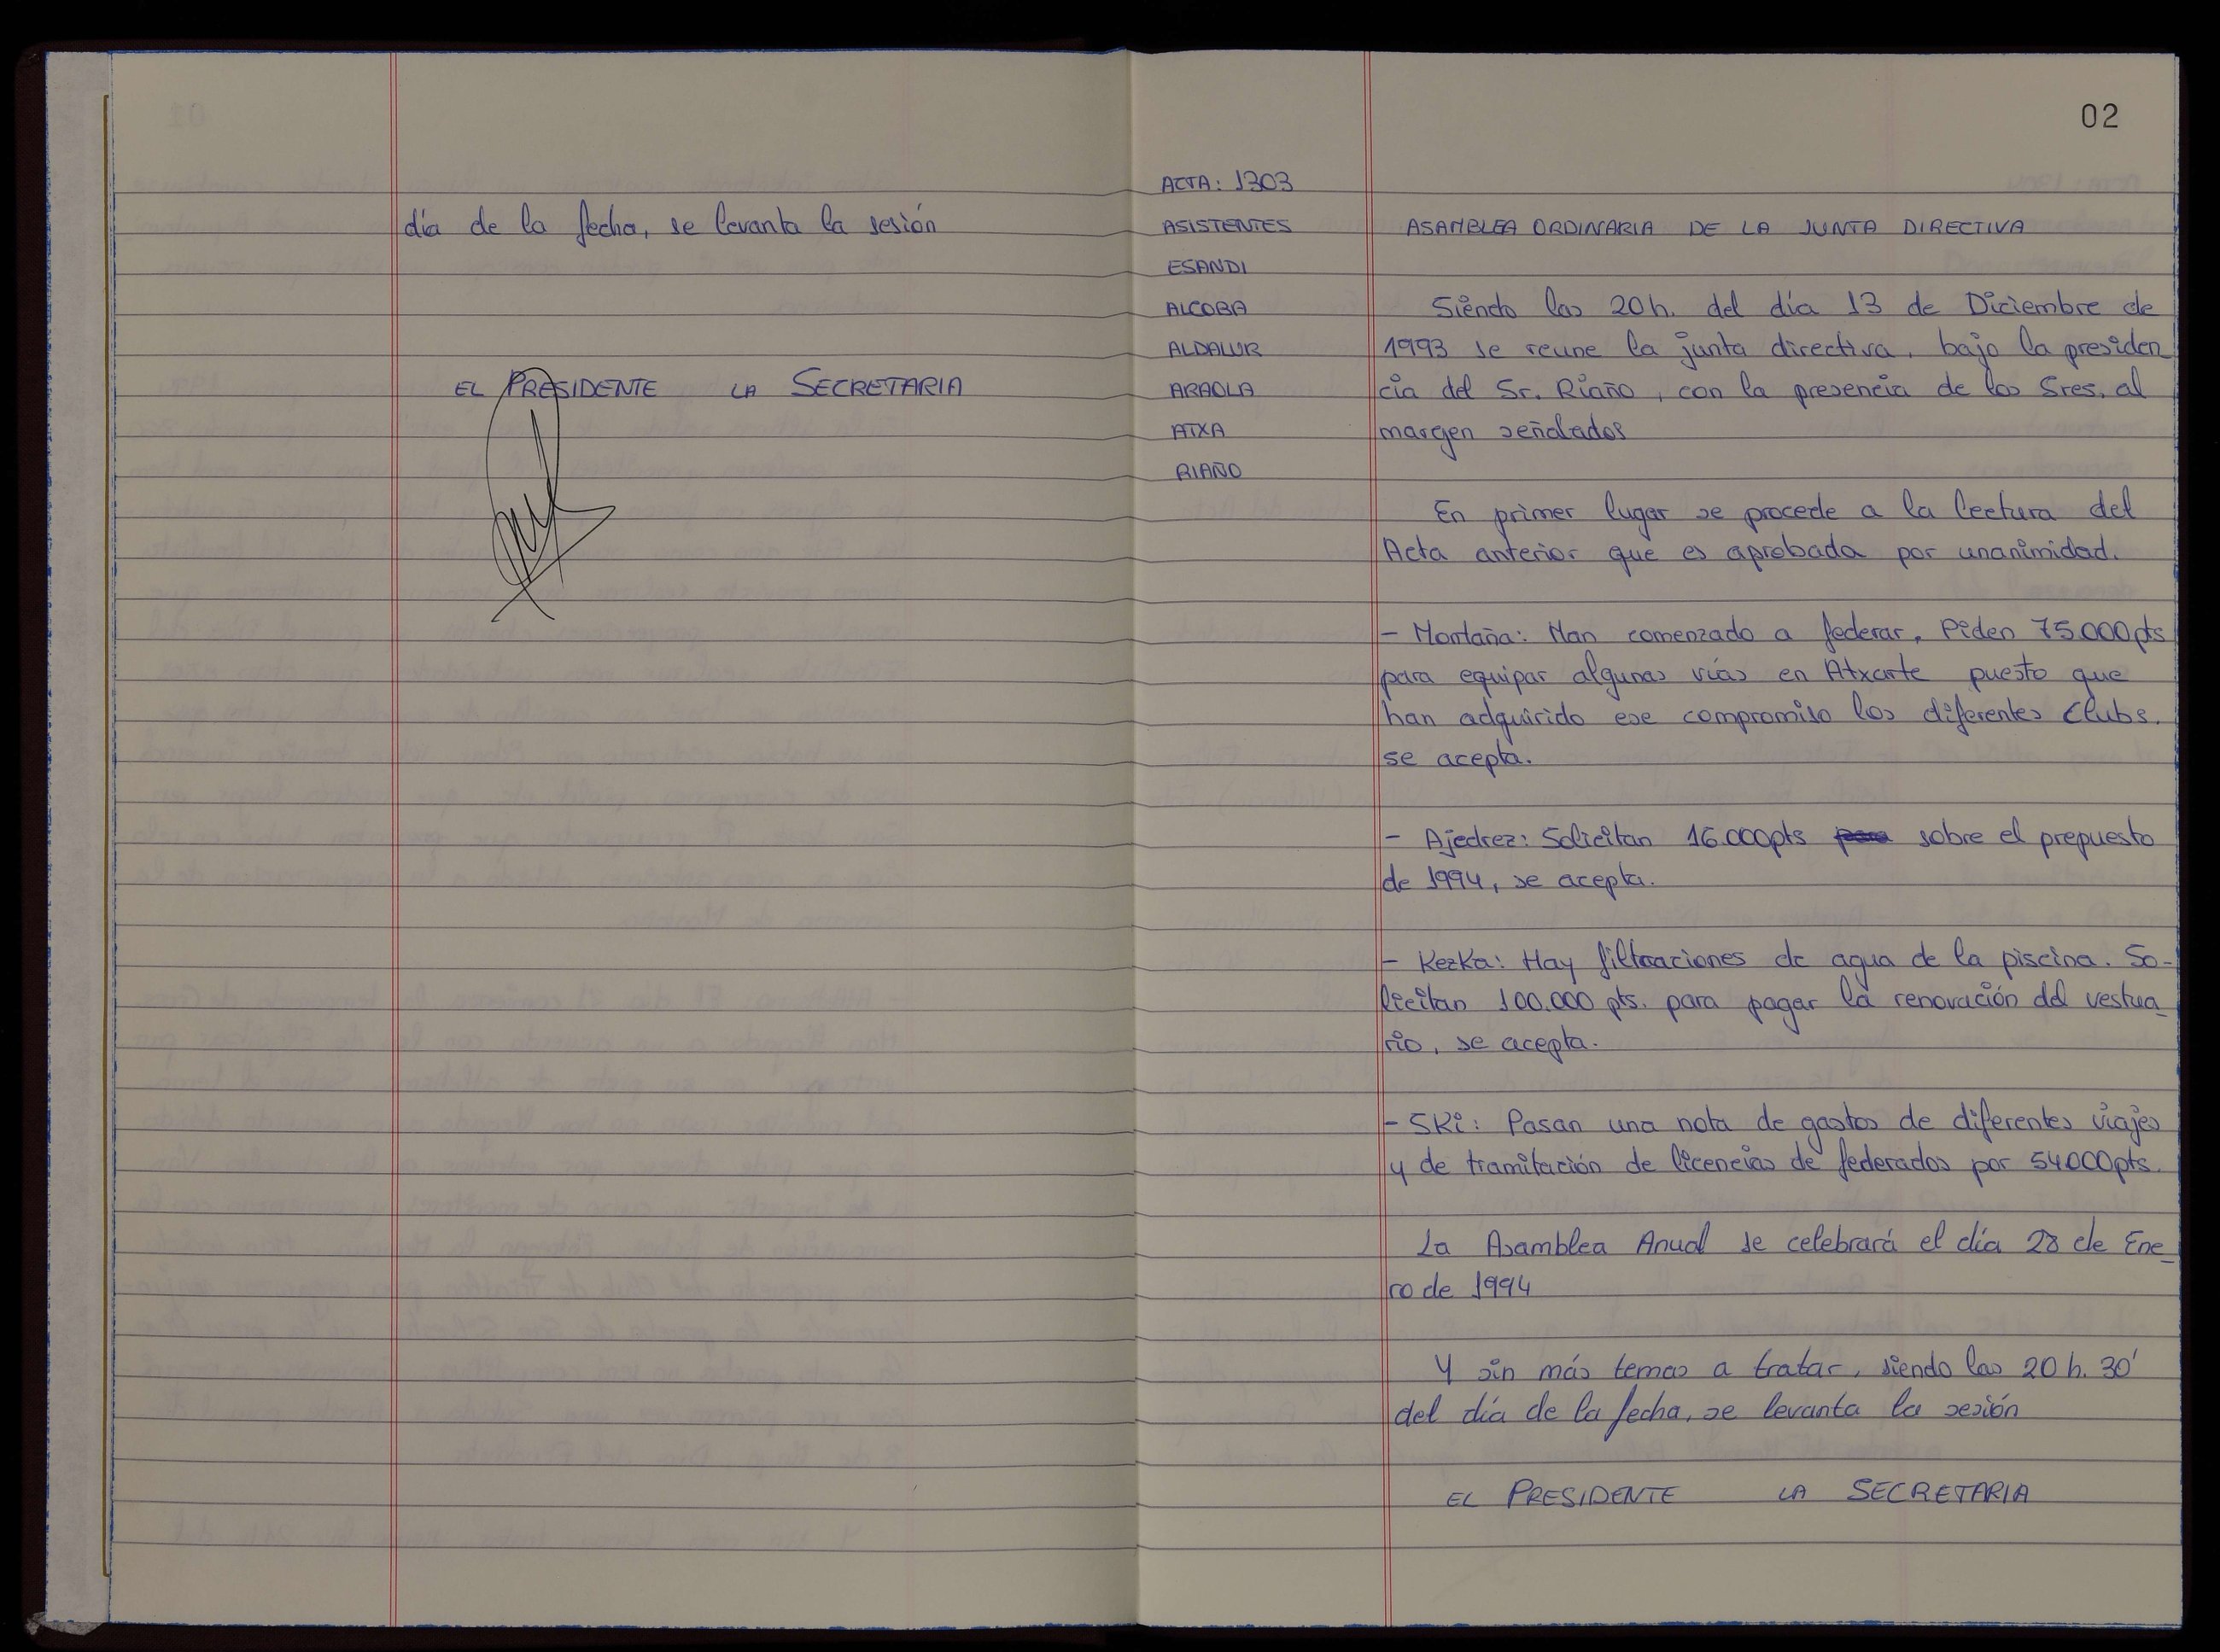 día de la fecha, se levanta la sesión
EL PRESIDENTE LA SECRETARIA
02
ACTA: 1303
ASISTENTES
ESANDI
ALCOBA
ALDALUR
ARAOLA
ATXA
RIAÑO
ASAMBLEA ORDINARIA DE LA JUNTA DIRECTIVA
Siendo las 20h. del día 13 de Diciembre de
1993 se reune la junta directiva, bajo la presiden_
cia del Sr. Riaño, con la presencia de los Sres. al
margen señalados
En primer lugar se procede a la lectura del
Acta anterior que es aprobada por unanimidad.
- Montaña: Han comenzado a federar, Piden 75.000pts
para equipar algunas vías en Atxarte puesto que
han adquirido ese compromiso los diferentes Clubs.
se acepta.
- Ajedrez: Solicitan 16.000pts sobre el prepuesto
de 1994, se acepta.
- Kezka: Hay filtraciones de agua de la piscina. So-
licitan 100.000 pts. para pagar la renovación del vestua_
rio, se acepta.
- SKi: Pasan una nota de gastos de diferentes viajes
y de tramitación de licencias de federados por 54.000pts.
La Asamblea Anual se celebrará el día 28 de Ene_
ro de 1994
Y sin más temas a tratar, siendo las 20 h. 30'
del día de la fecha, se levanta la sesión
EL PRESIDENTE LA SECRETARIA